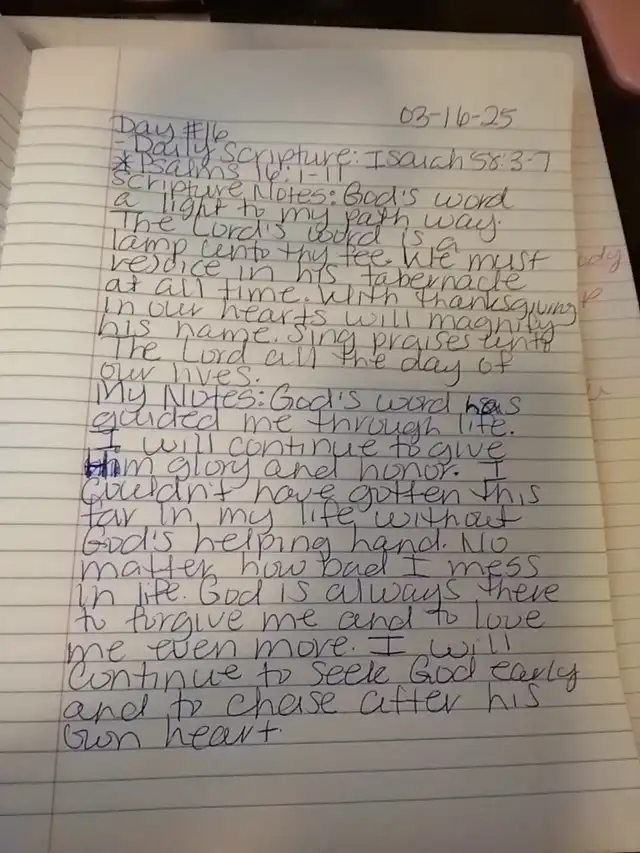 03-16-25
Day #16
- Daily Scripture: Isaiah 58:3-7
* Psalms 16:1-11
Scripture Notes: God's word
a light to my path way.
The Lord's word is a
lamp unto thy fee. We must
rejoice in his tabernacle
at all time. With thanksgiving
in our hearts will magnify
his name. Sing praises unto
The Lord all the day of
our lives.
My Notes: God's word has
guided me through life.
I will continue to give
Him glory and honor. I
Couldn't have gotten this
far in my life without
God's helping hand. No
matter how bad I mess
in life. God is always there
to forgive me and to love
me even more. I will
Continue to seek God early
and to chase after his
own heart.